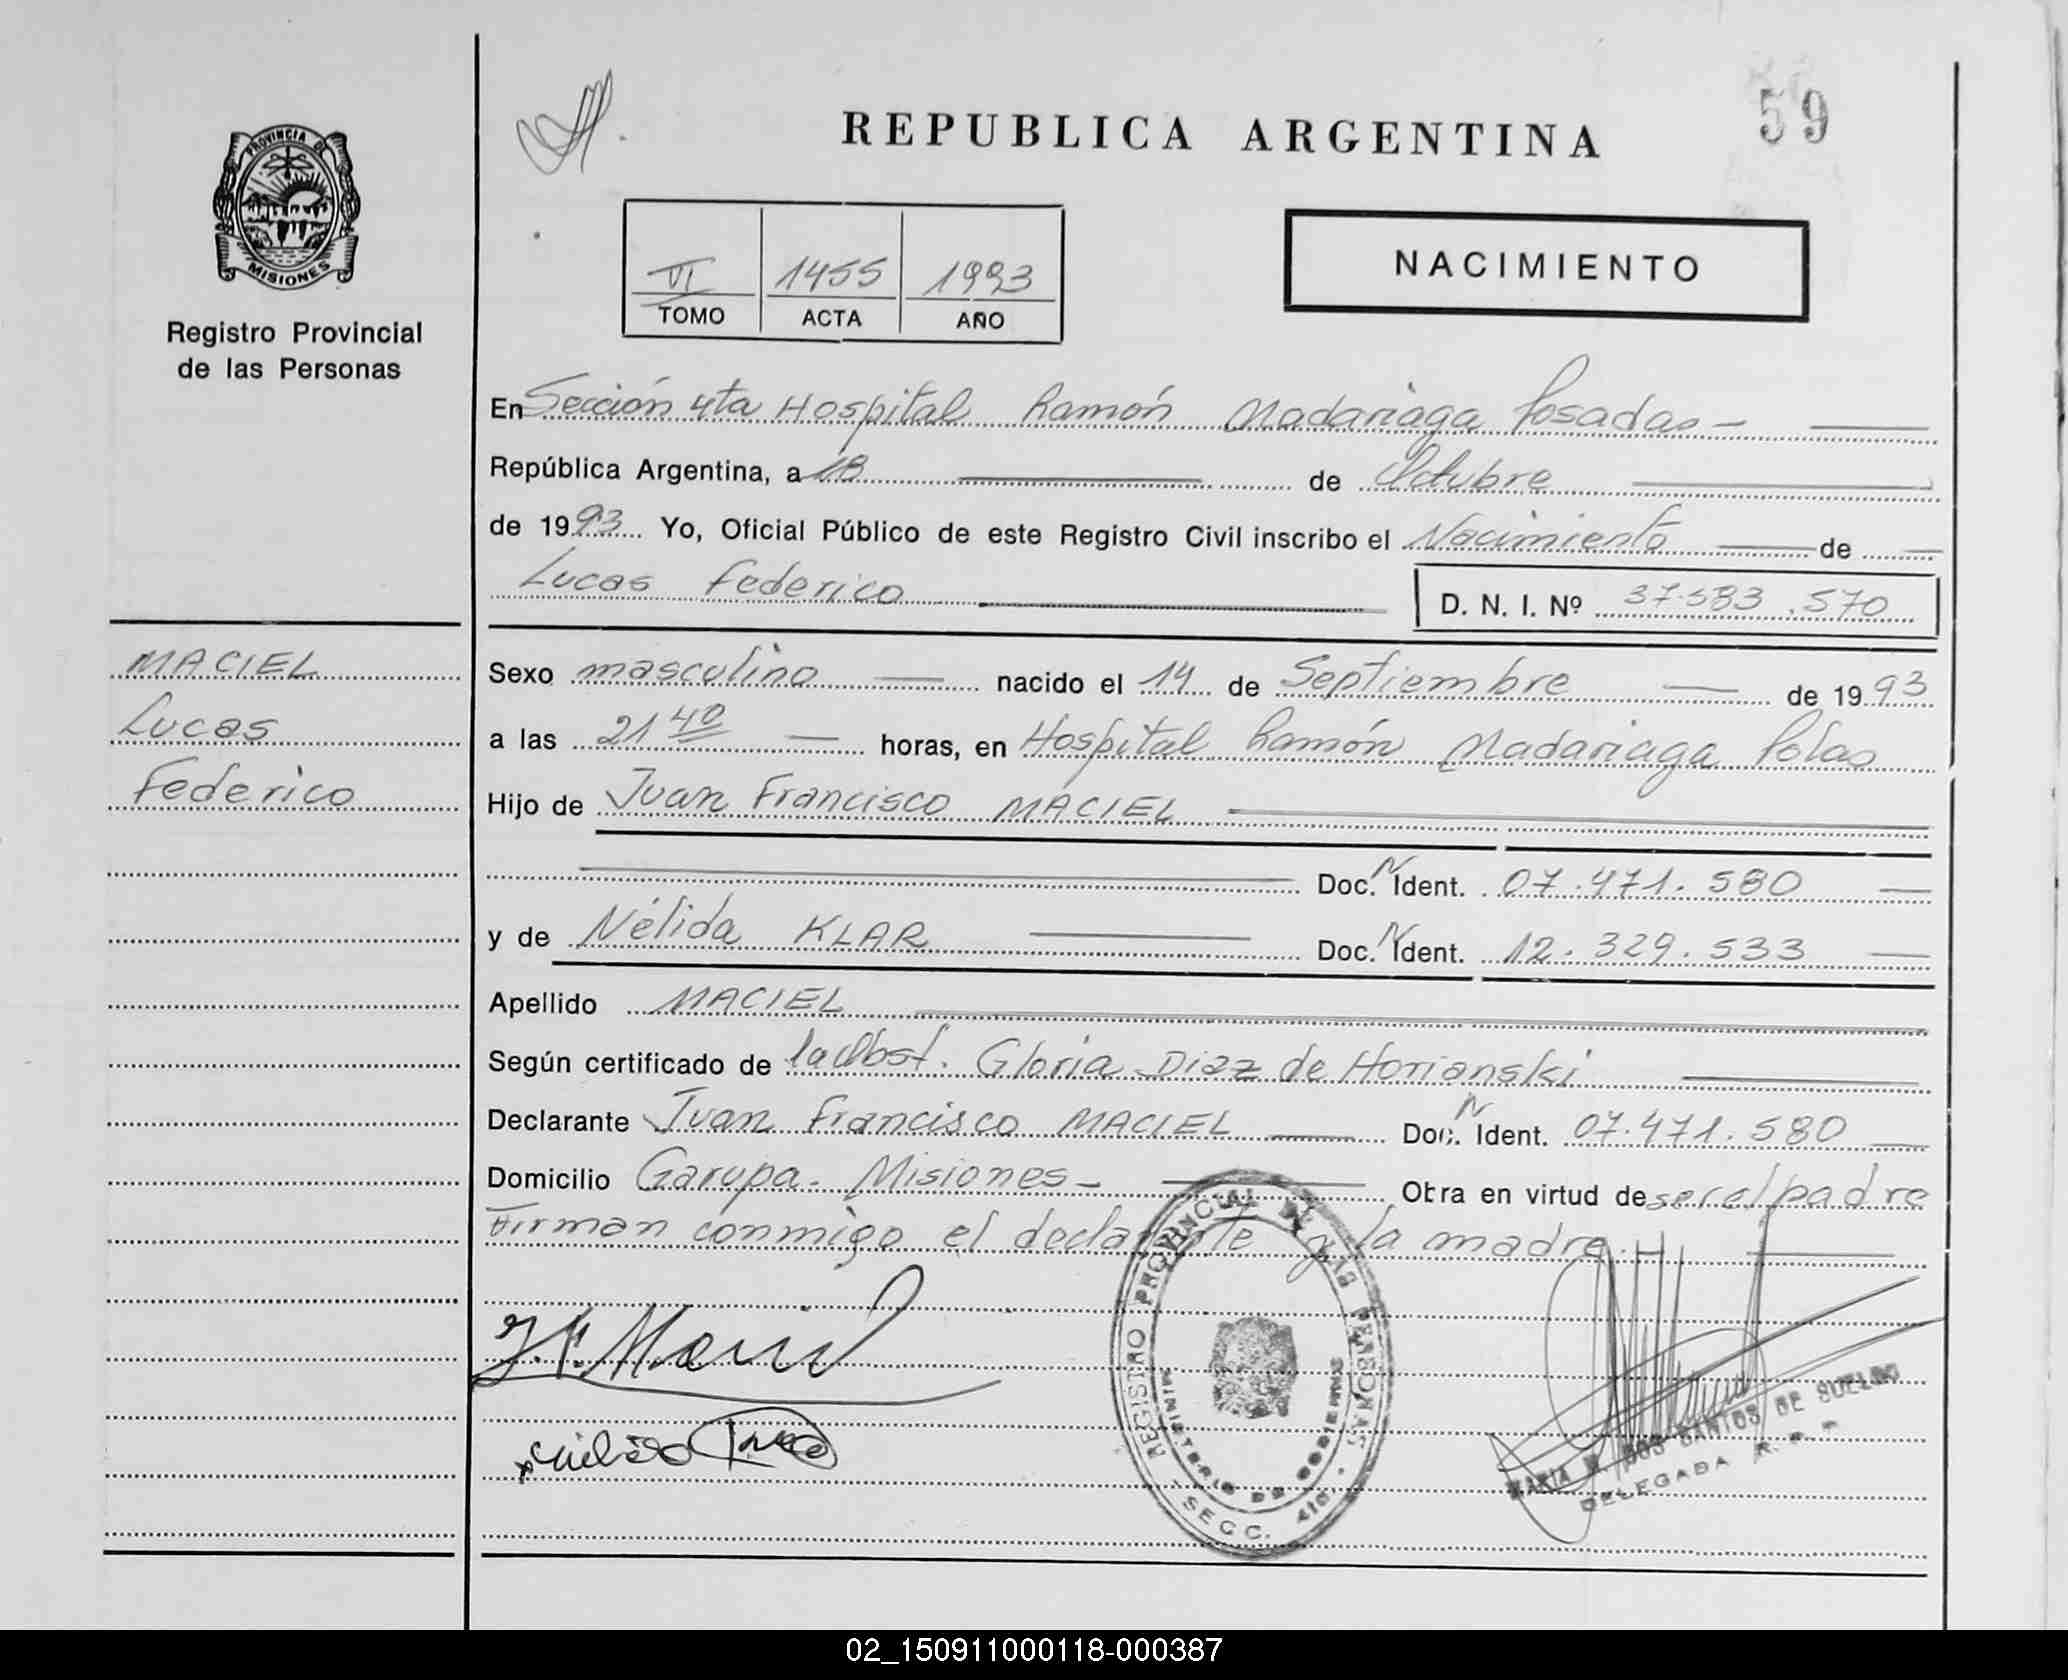 59
REPUBLICA ARGENTINA
PROVINCIA DE
MISIONES
Registro Provincial
de las Personas
VI 1455 1993
TOMO ACTA AÑO
NACIMIENTO
En Sección 4ta Hospital Ramón Madariaga Posadas —
República Argentina, a 18 de Octubre
de 1993 Yo, Oficial Público de este Registro Civil inscribo el Nacimiento de
Lucas Federico D. N. I. Nº 37.583.570
MACIEL
Lucas
Federico
Sexo masculino nacido el 14 de Septiembre de 1993
a las 21 40 horas, en Hospital Ramón Madariaga Pdas
Hijo de Juan Francisco MACIEL
Doc. N Ident. 07.471.580
y de Nélida KLAR Doc. N Ident. 12.329.533
Apellido MACIEL
Según certificado de la Obst. Gloria Diaz de Horianski
Declarante Juan Francisco MACIEL Doc. N Ident. 07.471.580
Domicilio Garupa. Misiones - Obra en virtud de ser el padre
Firman conmigo el declarante y la madre.-
J.F. Maciel
REGISTRO PROVINCIAL DE LAS PERSONAS
MINISTERIO DE GOBIERNO
SECC. 4ta.
MARIA DOS SANTOS DE SUELDO
DELEGADA R. P. P.
02_150911000118-000387